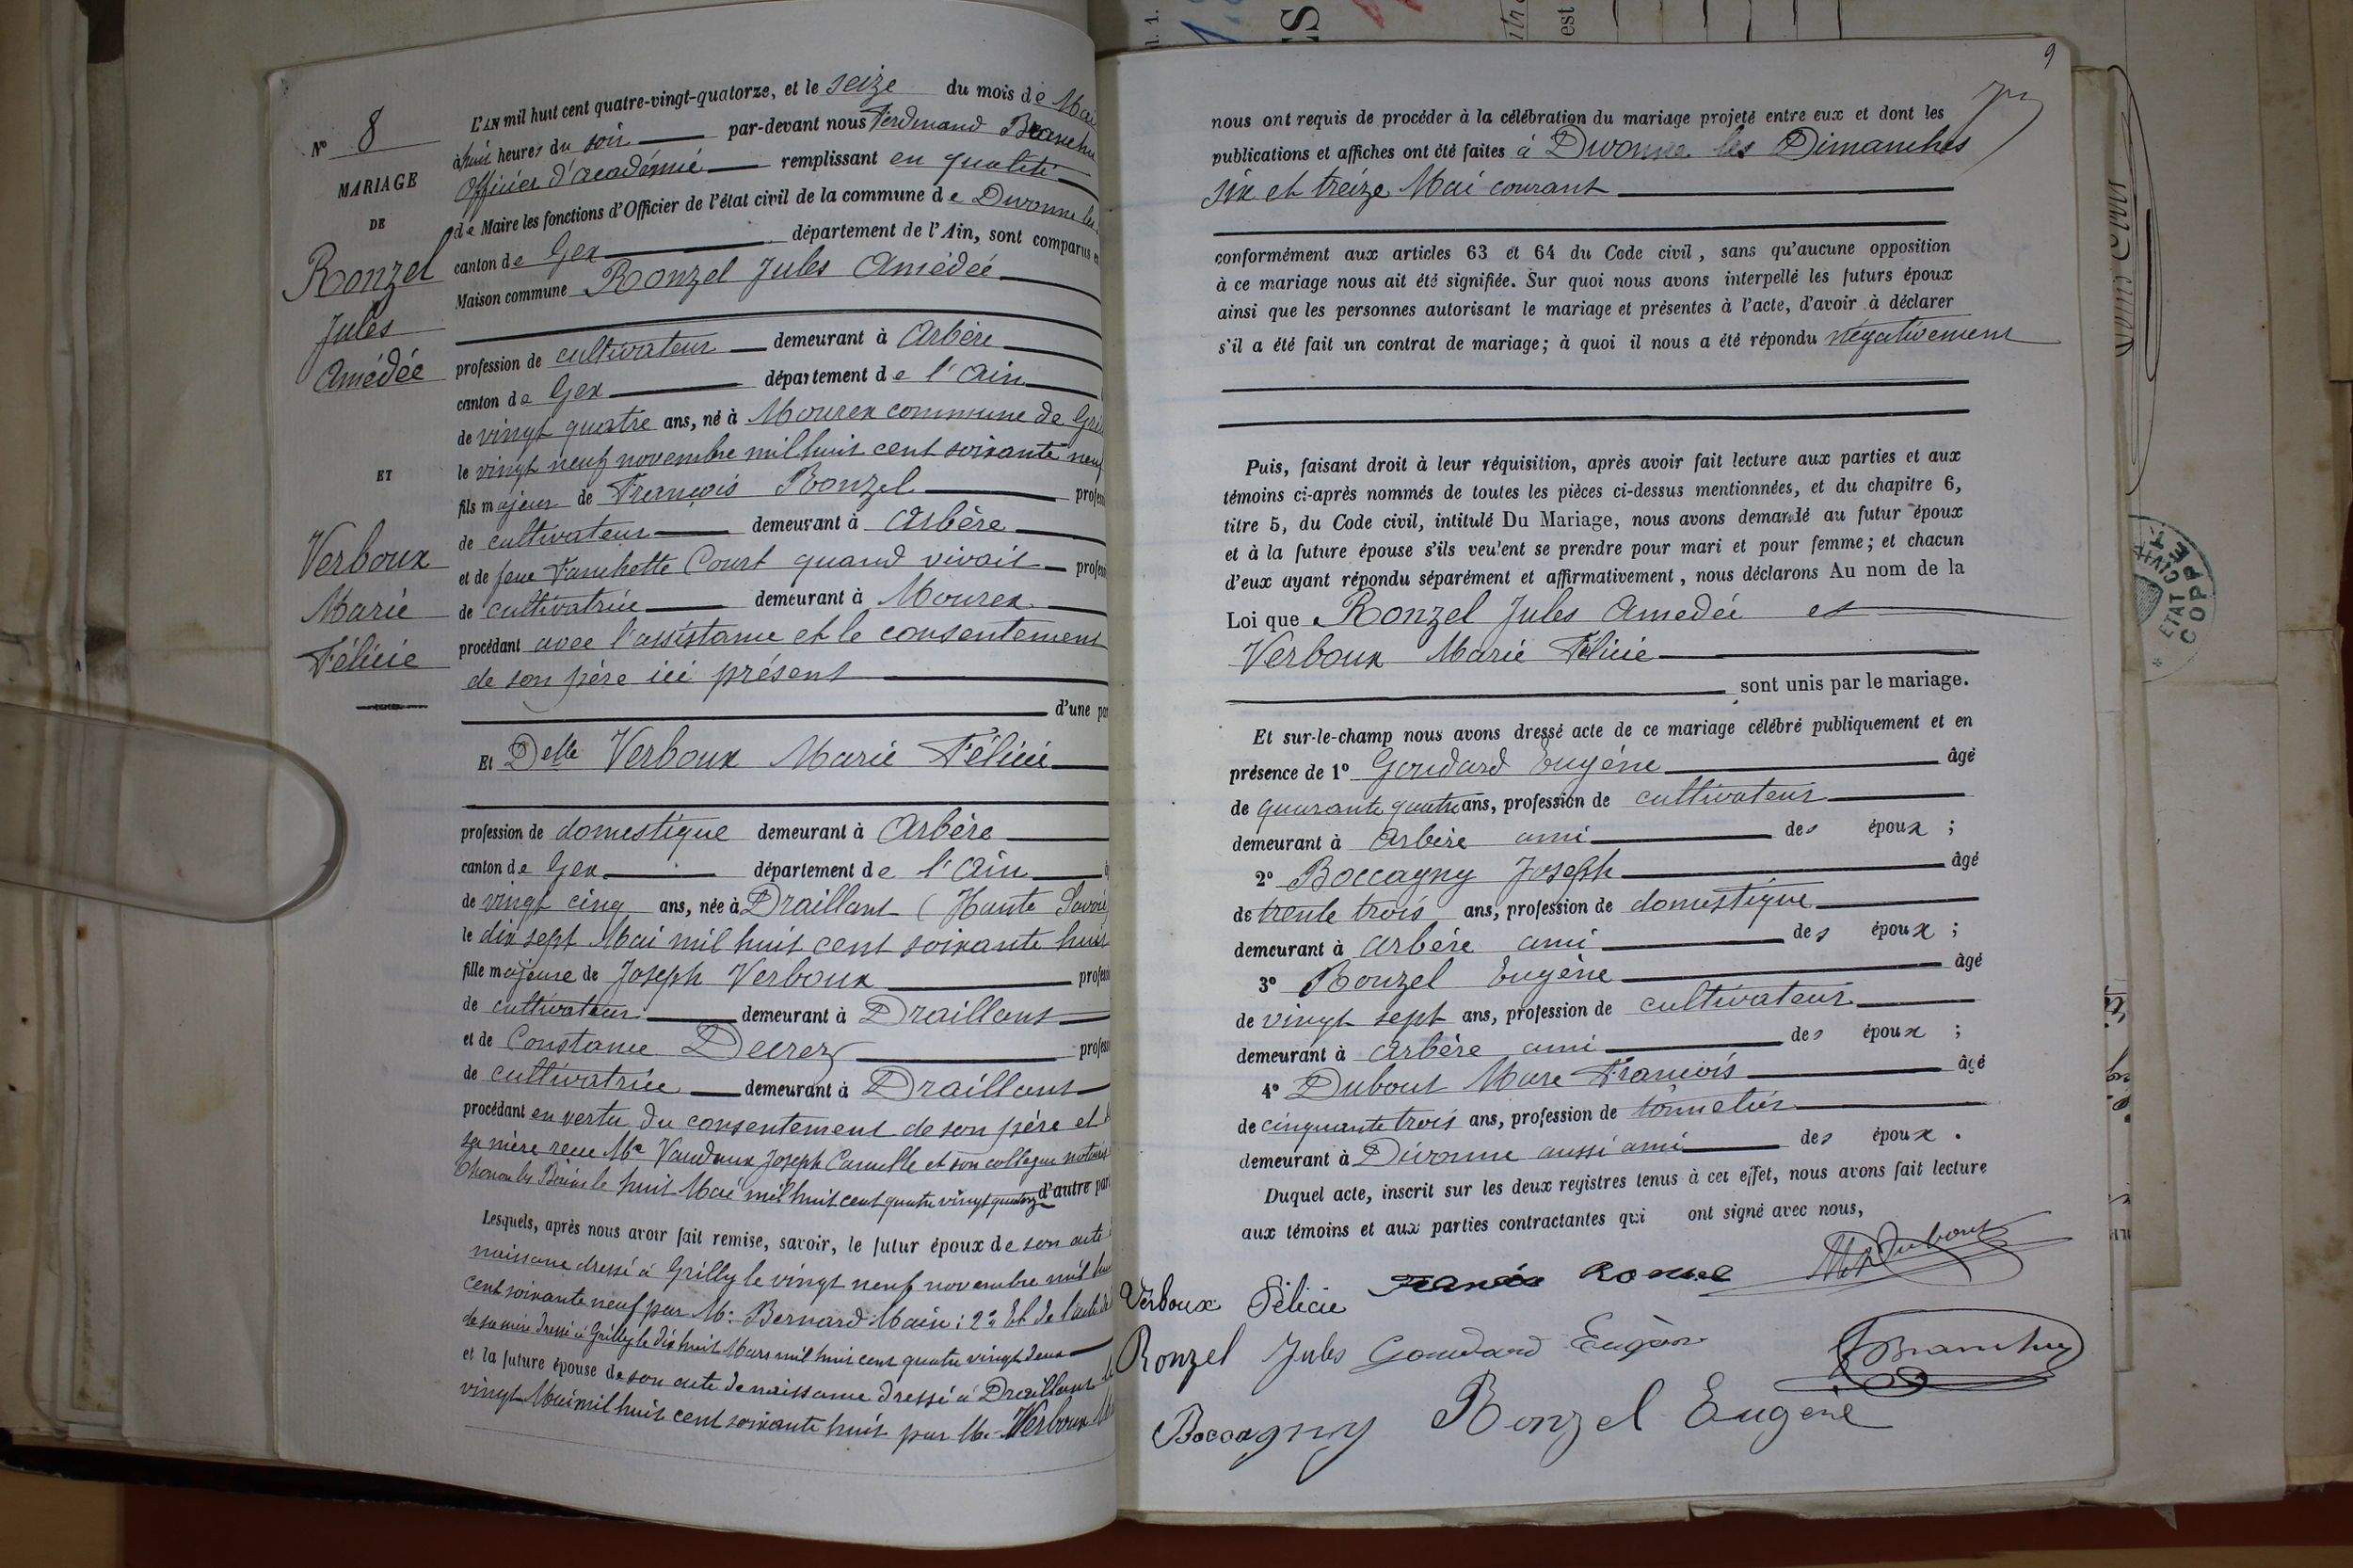 N° 8
MARIAGE
DE
Ronzel
Jules
Amédée
ET
Verboux
Marie
Félicie
L'AN mil huit cent quatre-vingt-quatorze, et le seize du mois de Mai
à huit heures du soir par-devant nous Ferdinand Branchu
Officier d'académie remplissant en qualité
de Maire les fonctions d'Officier de l'état civil de la commune de Divonne les
canton de Gex département de l'Ain, sont comparus en
Maison commune Ronzel Jules Amédée
profession de cultivateur demeurant à Arbère
canton de Gex département de l'Ain
de vingt quatre ans, né à Mourex commune de Gri
le vingt neuf novembre mil huit cent soixante neuf
fils majeur de François Ronzel profess
de cultivateur demeurant à Arbère
et de feue Fanchette Court quand vivait profess
de cultivatrice demeurant à Mourex
procédant avec l'assistance et le consentement
de son père ici présent
d'une par
Et Delle Verboux Marie Félicie
profession de domestique demeurant à Arbère
canton de Gex département de l'Ain
de vingt cinq ans, née à Draillant (Haute Savoie
le dix sept Mai mil huit cent soixante huit
fille majeure de Joseph Verboux profess
de cultivateur demeurant à Draillant
et de Constance Decrez profess
de cultivatrice demeurant à Draillant
procédant en vertu du consentement de son père et
sa mère reçu Me Vaudaux Joseph Camille et son collègue notaires
Thonon les Bains le huit Mai mil huit cent quatre vingt quatorze d'autre part
Lesquels, après nous avoir fait remise, savoir, le futur époux de son acte
naissance dressé à Grilly le vingt neuf novembre mil huit
cent soixante neuf par Mr Bernard Maire ; 2° Et de l'acte de
de sa mère dressé à Grilly le dix huit Mars mil huit cent quatre vingt deux
et la future épouse de son acte de naissance dressé à Draillant le
vingt Mai mil huit cent soixante huit par Mr Verboux
9
nous ont requis de procéder à la célébration du mariage projeté entre eux et dont les
publications et affiches ont été faites à Divonne les Dimanches
six et treize Mai courant
conformément aux articles 63 et 64 du Code civil, sans qu'aucune opposition
à ce mariage nous ait été signifiée. Sur quoi nous avons interpellé les futurs époux
ainsi que les personnes autorisant le mariage et présentes à l'acte, d'avoir à déclarer
s'il a été fait un contrat de mariage; à quoi il nous a été répondu négativement
Puis, faisant droit à leur réquisition, après avoir fait lecture aux parties et aux
témoins ci-après nommés de toutes les pièces ci-dessus mentionnées, et du chapitre 6,
titre 5, du Code civil, intitulé Du Mariage, nous avons demandé au futur époux
et à la future épouse s'ils veulent se prendre pour mari et pour femme; et chacun
d'eux ayant répondu séparément et affirmativement, nous déclarons Au nom de la
Loi que Ronzel Jules Amédée et
Verboux Marie Félicie
sont unis par le mariage.
Et sur-le-champ nous avons dressé acte de ce mariage célébré publiquement et en
présence de 1° Goudard Eugène âgé
de quarante quatre ans, profession de cultivateur
demeurant à Arbère ami des époux ;
2° Boccagny Joseph âgé
de trente trois ans, profession de domestique
demeurant à Arbère ami des époux ;
3° Ronzel Eugène âgé
de vingt sept ans, profession de cultivateur
demeurant à Arbère ami des époux ;
4° Dubout Marc François âgé
de cinquante trois ans, profession de tonnelier
demeurant à Divonne aussi ami des époux .
Duquel acte, inscrit sur les deux registres tenus à cet effet, nous avons fait lecture
aux témoins et aux parties contractantes qui ont signé avec nous,
Verboux Félicie Ronzel Dubout
Ronzel Jules Goudard Eugène Branchu
Boccagny Ronzel Eugène
ETAT CIVIL
COPPET